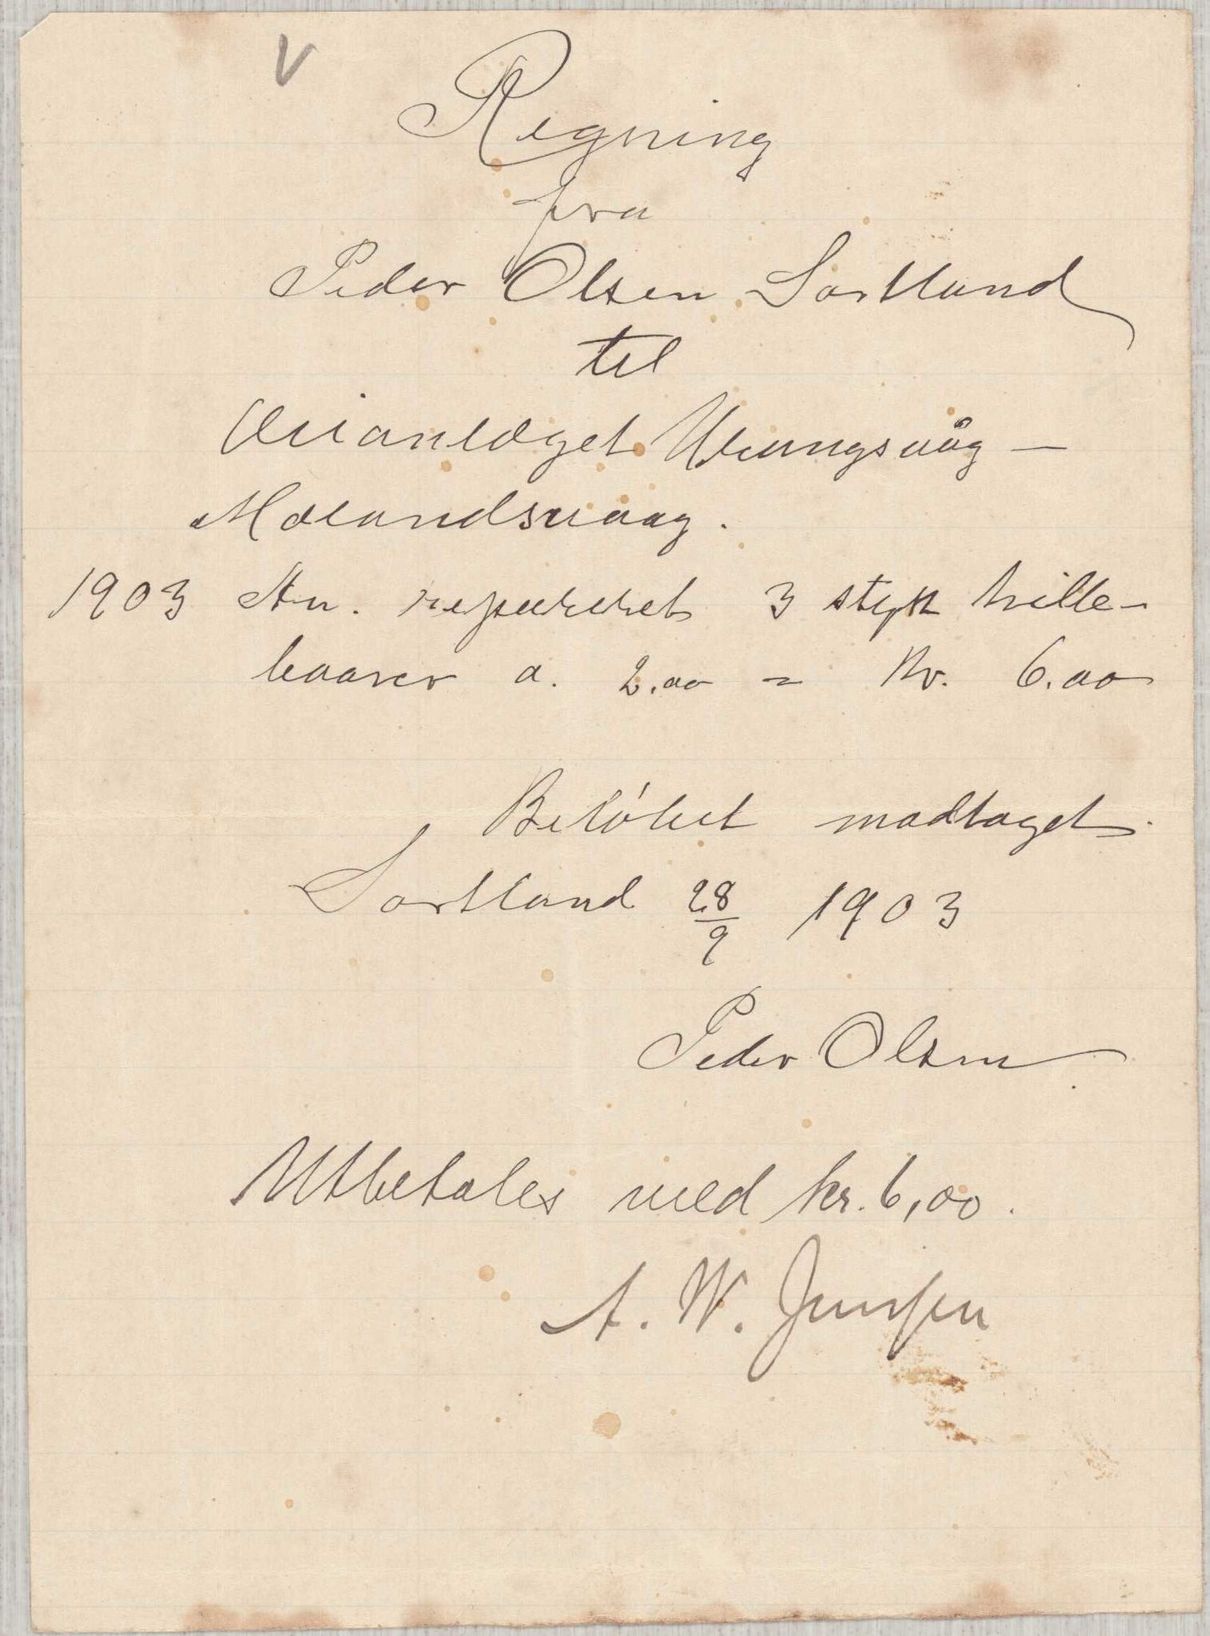 V
Regning
fra
Peder Olsen Sortland
til
Veianlæget
1903 An. repareret 3 styk trille-
baarer a. 2.00 = Kr. 6.00
Beløbet modtaget.
Sortland 28/9 1903
Peder Olsen
Utbetales med kr. 6,00.
A. W. Jenssen